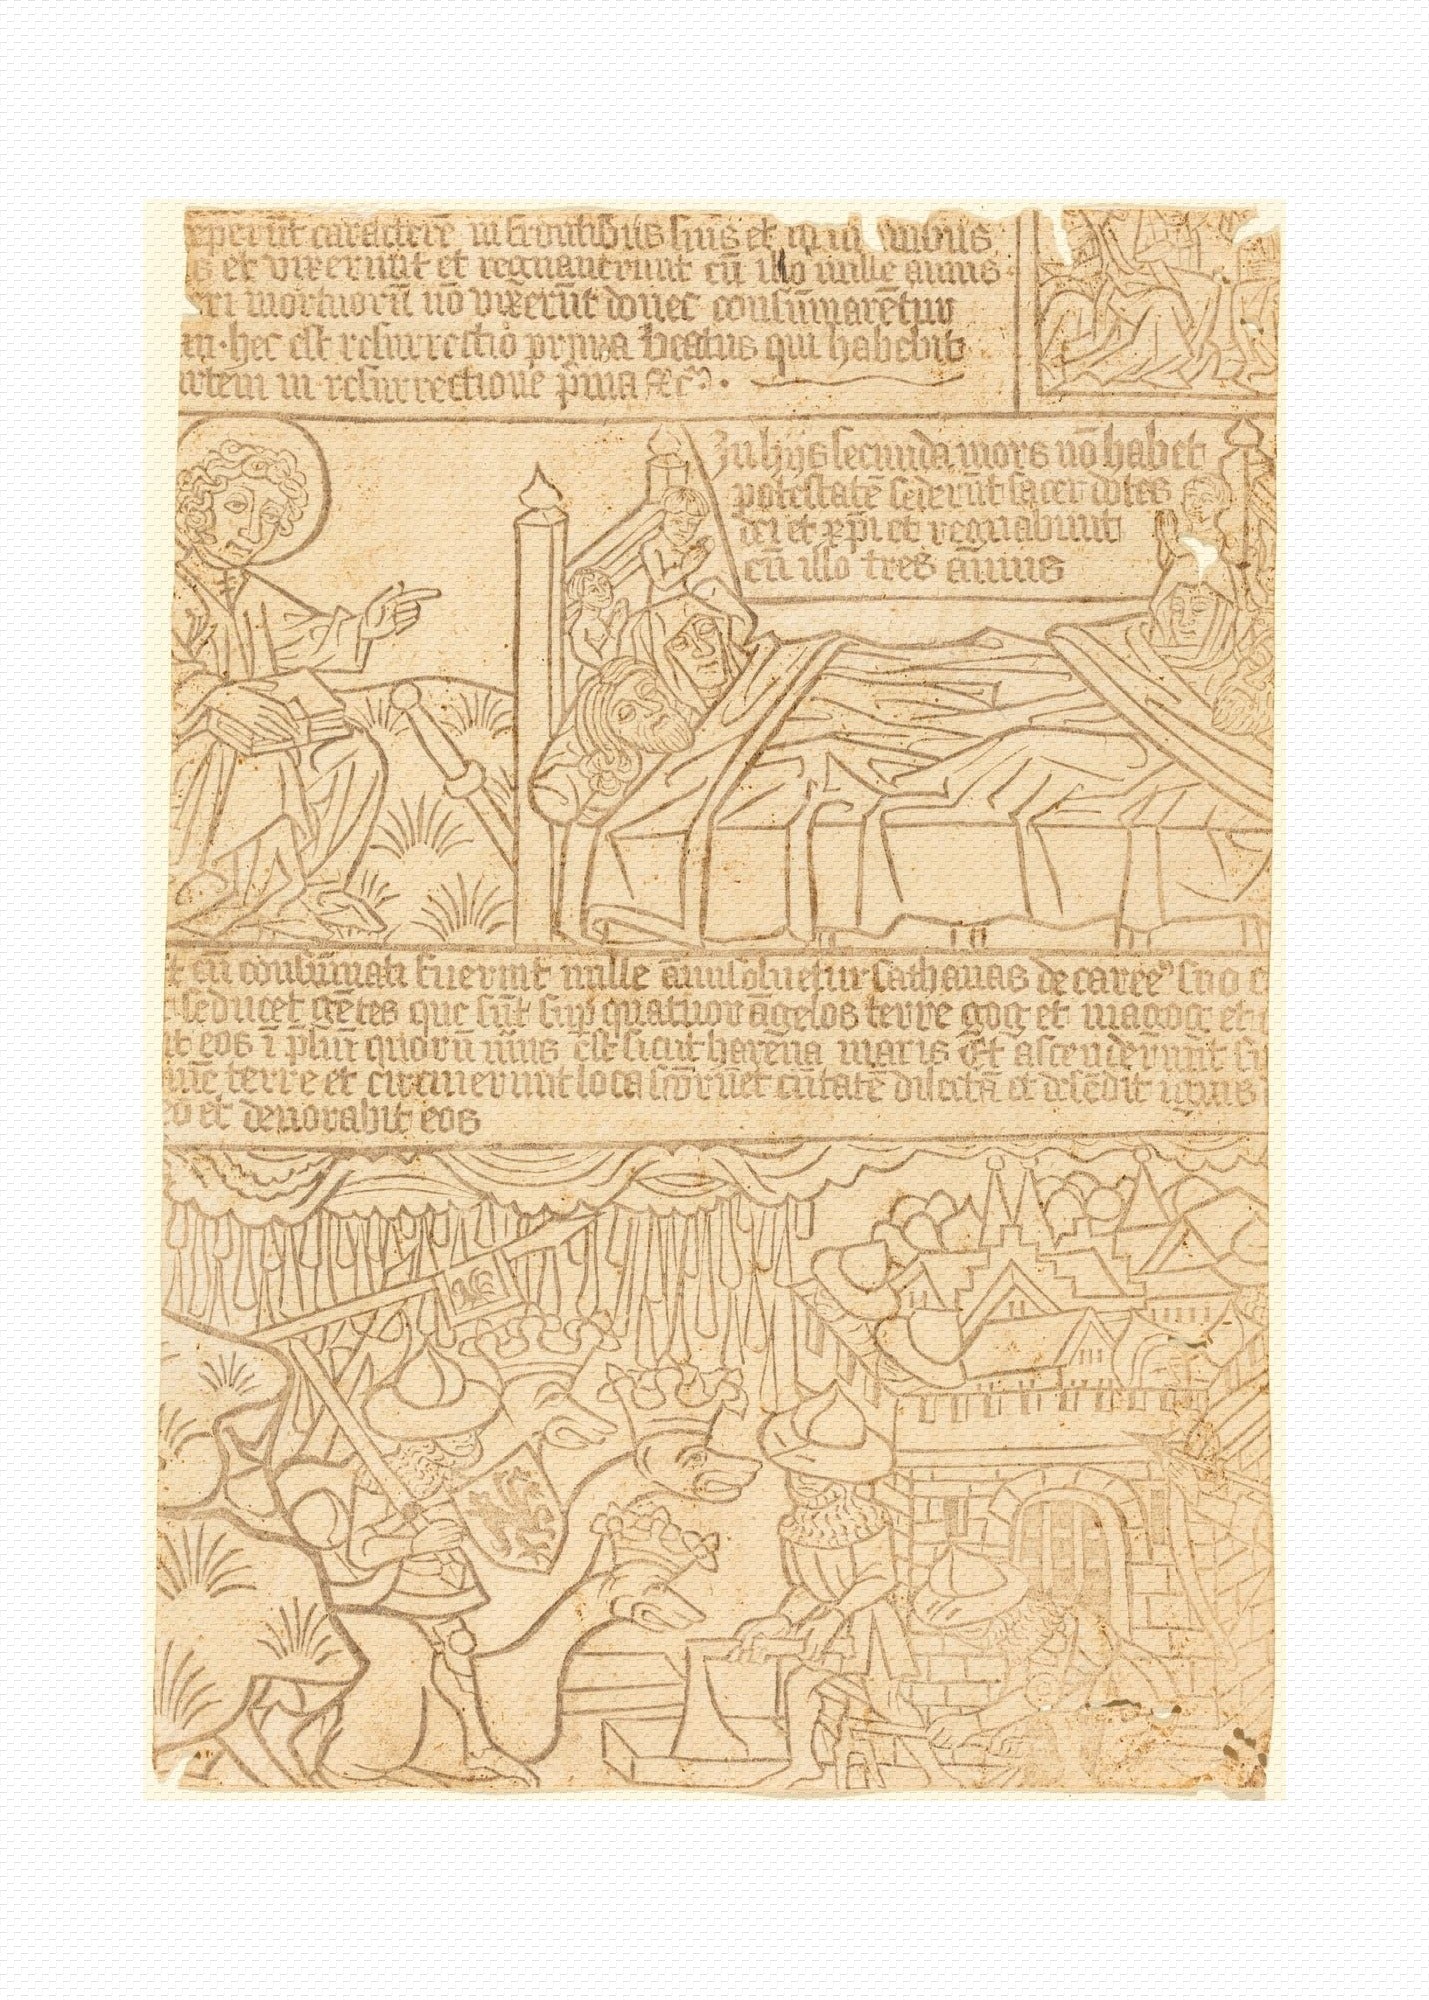 eperūt caractere in frontibus suis et in manibus
s et vixerunt et regnaverunt cū illo mille annis ·
eri mortuorū nō vixerūt donec consūmarētur
an · hec est resurrectio prima Beatus qui habebit
artem in resurrectione p̄ma &c̄ ·
In hijs secunda mors nō habet
potestatē sed erūt sacerdotes
dei et xp̄i et regnabunt
cū illo tres ānnis
t cū consūmati fuerint mille āni solvetur sathanas de carcē suo e
t seducet gētes que sūt sup quatuor āgelos terre gog et magog et
it eos ī p̄liū quorū nūs est sicut harena maris Et ascenderūnt
terre et circuierunt loca et civitatē dilectā et desēdit ignis
eo et devorabit eos